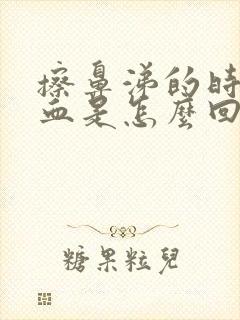 擦鼻涕的時
血是怎麼回
糖果粒兒